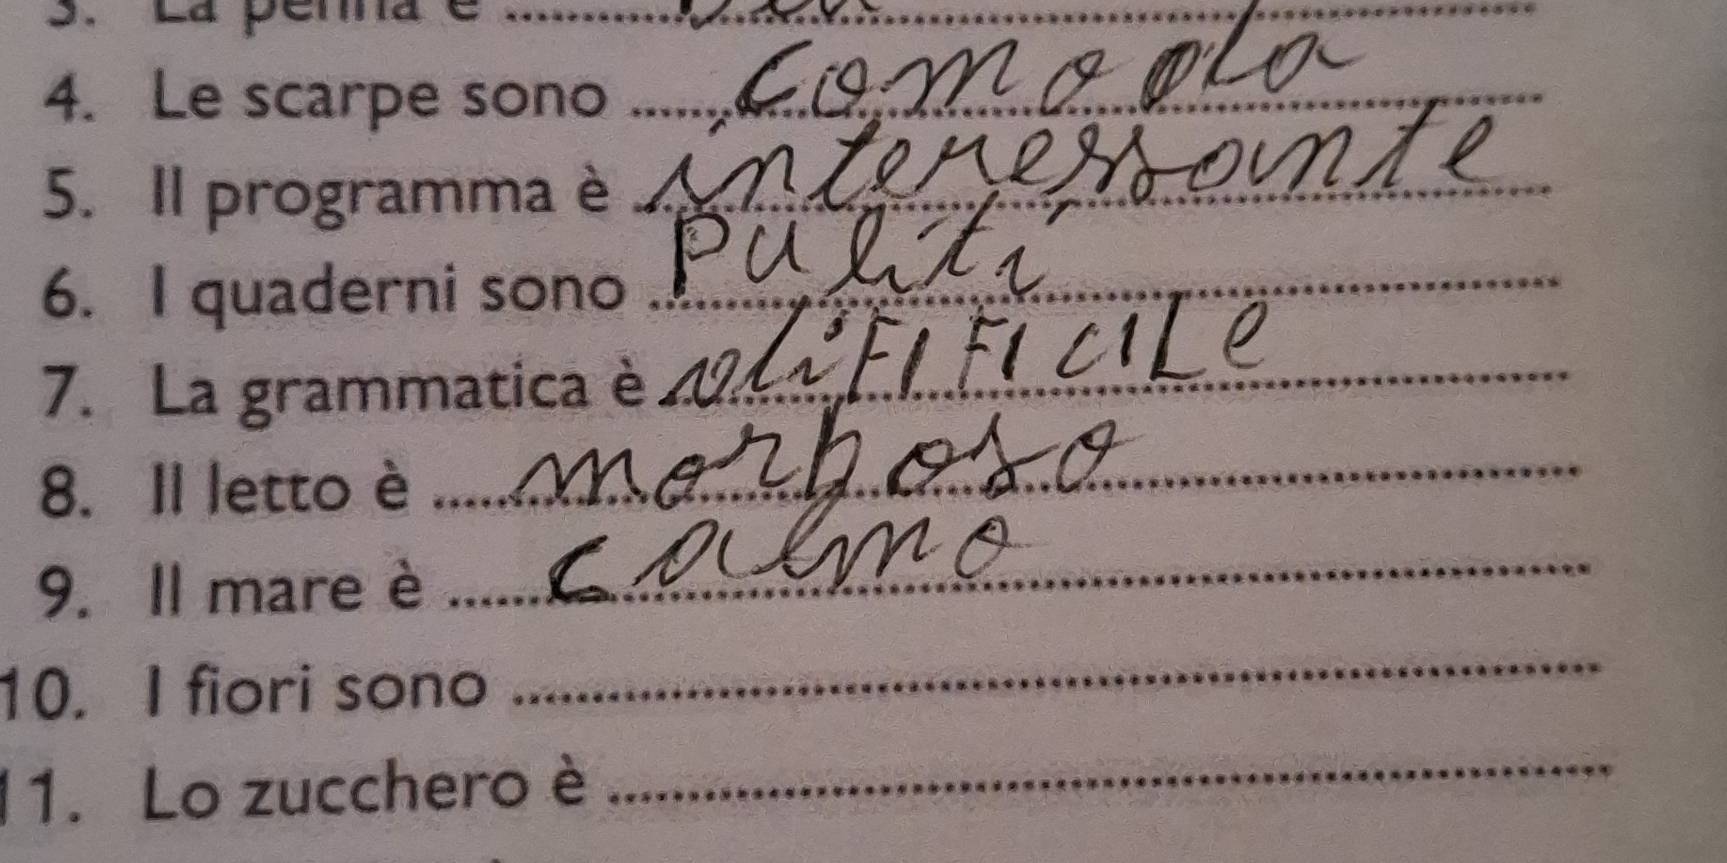 3. La penna è
4. Le scarpe sono comoda
5. Il programma è interessante
6. I quaderni sono puliti
7. La grammatica è difificile
8. Il letto è morboso
9. Il mare è calmo
10. I fiori sono
11. Lo zucchero è